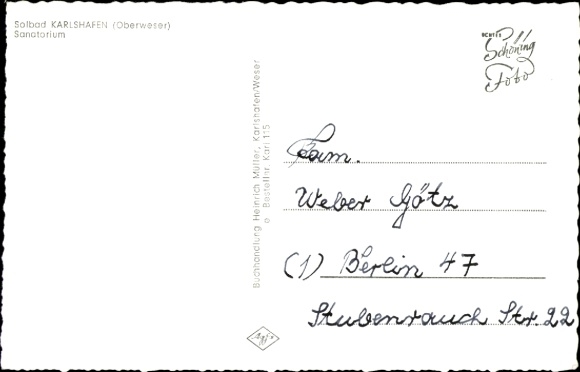 Solbad KARLSHAFEN (Oberweser)
Sanatorium
ECHTES
Schöning
Foto
Buchhandlung Heinrich Müller, Karlshafen/Weser
Bestellnr. Karl 115
Fam.
Weber Götz
(1) Berlin 47
Stubenrauch Str. 22
Agfa